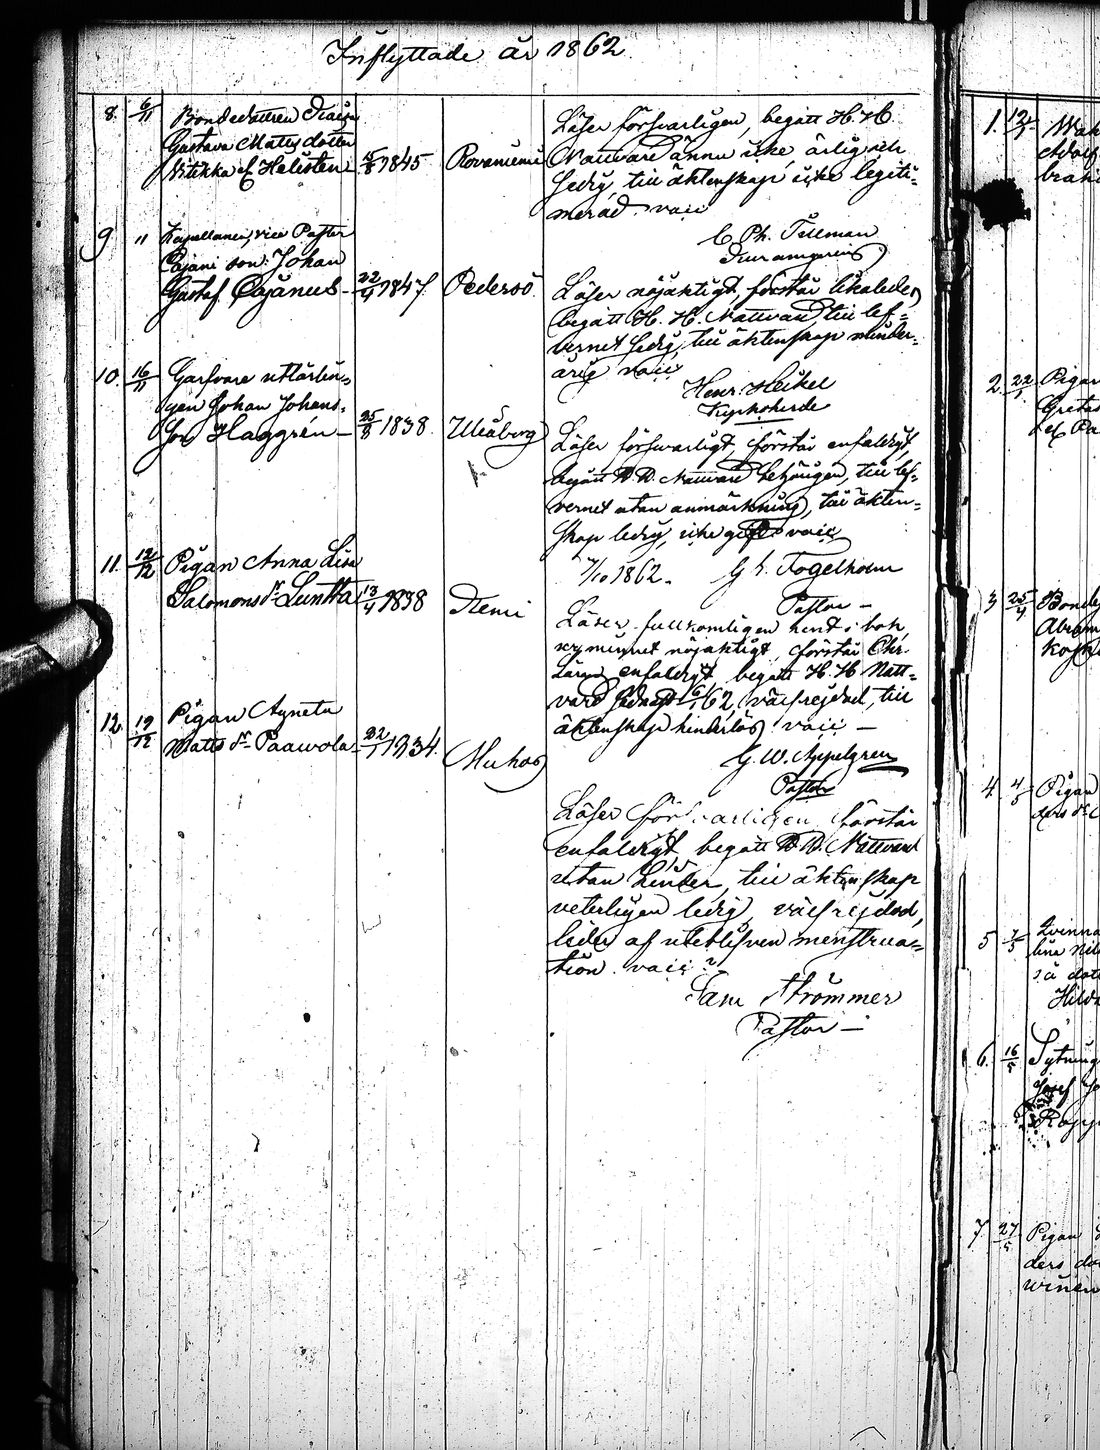 Inflyttade år 1862.
8. 6/11 Bondedottren
Gustava Matts dotter
Witikka el. Helisten 15/8 1845 Rovaniemi
Läser försvarligen, begått H. H.
Nattvard ännu icke, ärlig och
ledig, till äktenskap icke legiti-
merad. vaccin
C. Ph. Tillman
9 " Kapellanen, vice Pastor
Cajani son: Johan
Gustaf Cajanus - 22/4 1847. Pedersö.
Läser nöjaktigt, förstår likaledes
begått H. H. Nattvard, till lef-
vernet ledig, till äktenskap minder-
årig vacc.
Henr. Heikel
Kyrkoherde
10. 16/11 Garfvare utlärlin-
gen Johan Johans-
son Haggrén - 25/8 1838. Uleåborg
Läser försvarligt, förstår enfaldigt,
begått H. H. Nattvard behörigen, till lef-
vernet utan anmärkning, till äkten-
skap ledig, icke vacc.
7/10 1862. G. L. Fogelholm
Pastor -
11. 12/12 Pigan Anna Lisa
Salomons dr Luntta 13/4 1838 Kemi
Läser fullkomligen rent i bok,
ur minnet nöjaktigt, förstår Chr.
Läran enfaldigt, begått H. H. Natt-
vard sednast 6/1 62, välfrejdad, till
äktenskap hinderlös vacc. -
G. W. Appelgren
Pastor
12. 19/12 Pigan Agneta
Matts dr Paawola - 22/1 1834. Muhos
Läser försvarligen förstår
enfaldigt, begått H. H. Nattvard
utan hinder, till äktenskap
veterligen ledig, välfrejdad,
lider af utebl menstrua-
tion. vacc.?
Sam Strömmer
Pastor -
1. 13/1
Adolf
2. 22/1 Pigan
Greta
el. Pa
3 25/4 Bonde
Abram
4. 4/5 Pigan
ders dr
5 7/5 Qvinna
lina Nil
Hild
6. 16/5 Sytning
Josef Jo
7. 27/5 Pigan
ders do
winen